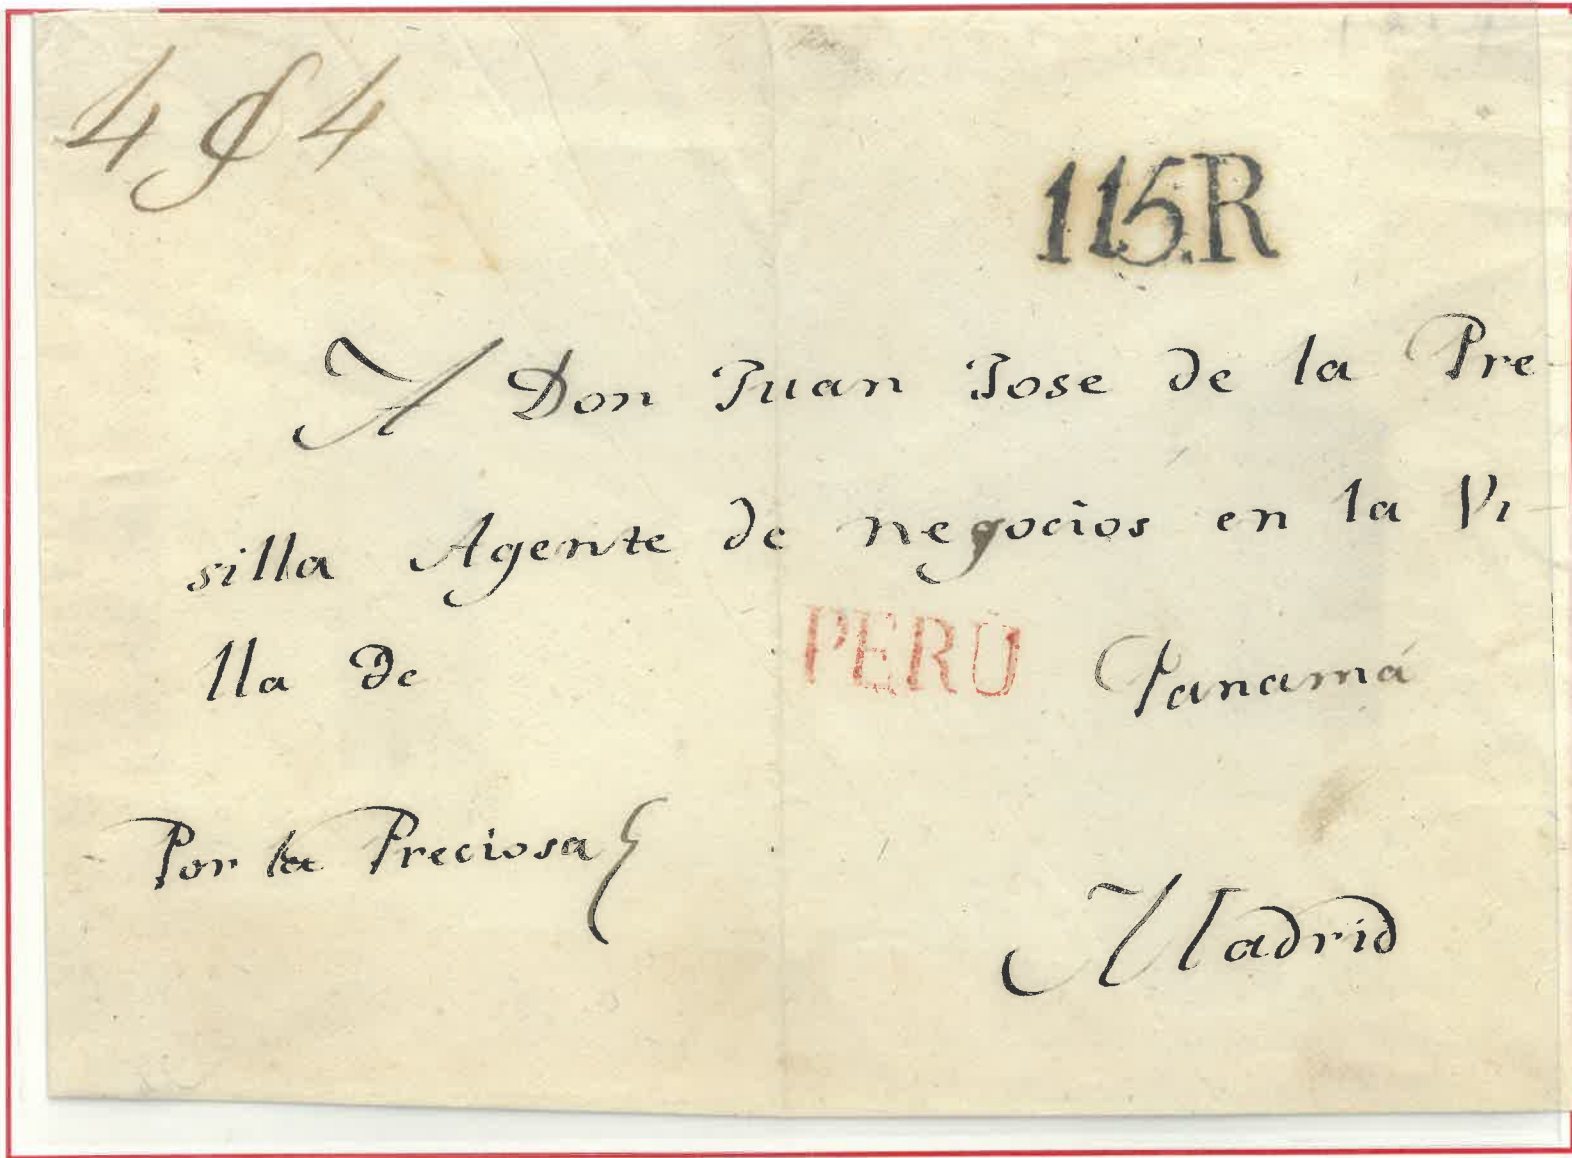 4 4
115.R
A Don Juan Jose de la Pre
silla Agente de negocios en la Vi
lla de PERU Panamá
Por la Preciosa
Madrid